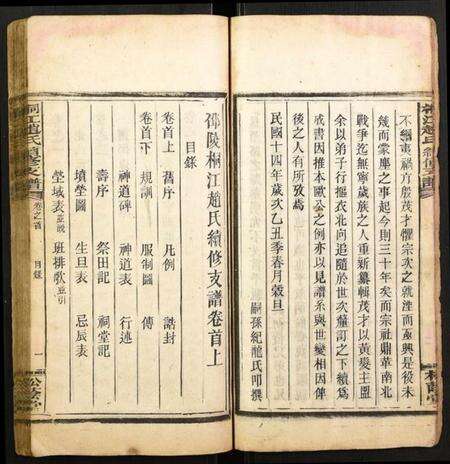 不絕畫禍方殷茂才懼宗次之就湮而亟興是役未
幾而蒙塵之事起今則三十年矣而宗社鼎革南北
戰爭迄無寧歲族之人重新纂輯茂才以黃孌主盟
余以弟子行摳衣北向追隨於世次釐訂之下續爲
戒書因推本歐公之例亦以見譜系與世變相因俾
後之人有所攷焉
民國十四年歲次乙丑季春月穀旦
嗣孫紀龍氏叩撰
邵陵桐江趙氏續修支譜卷首上
目錄
卷首上 舊序 凡例 誥封
卷首下 規訓 服制圖 傳
神道碑 神道表 行述
壽序 祭田記 祠堂記
墳塋圖 生旦表 忌辰表
塋域表並說 班排歌並引
桐江趙氏續修支譜
卷之首
目錄
一